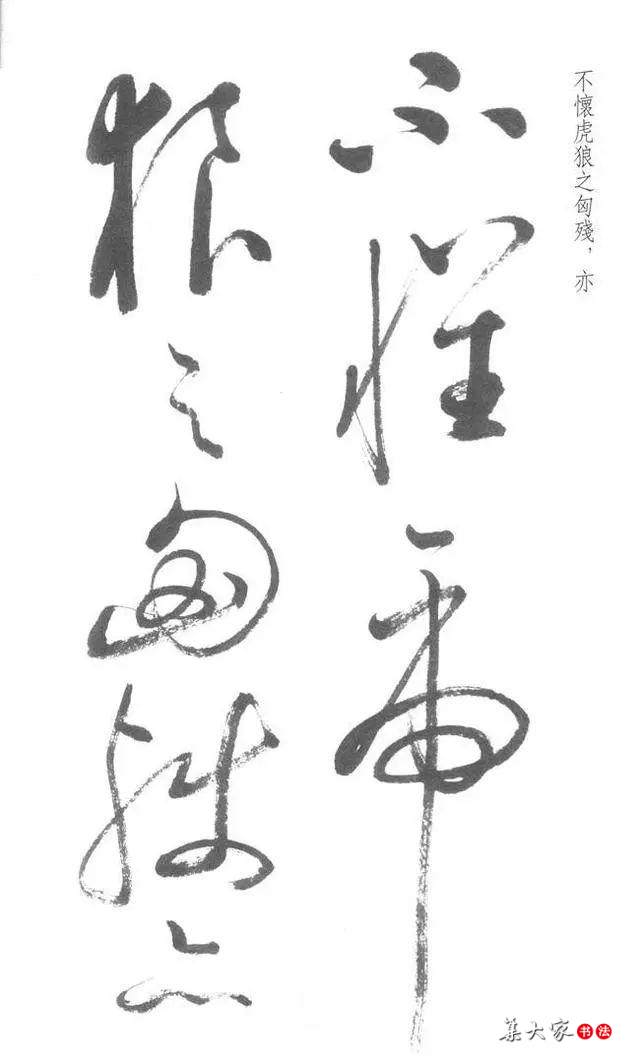 不懷虎狼之匈殘，亦
不懼虎
狼之匈殘亦
集大家书法